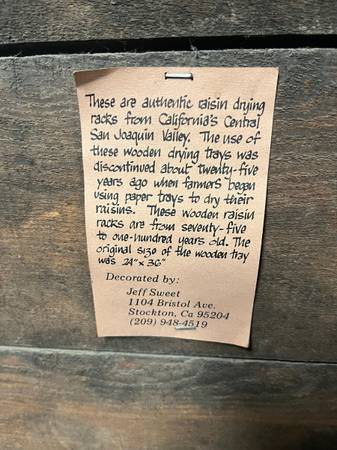 These are authentic raisin drying
racks from California's Central
San Joaquin Valley. The use of
these wooden drying trays was
discontinued about twenty-five
years ago when farmers began
using paper trays to dry their
raisins. These wooden raisin
racks are from seventy-five
to one-hundred years old. The
original size of the wooden tray
was 24" x 36"
Decorated by:
Jeff Sweet
1104 Bristol Ave.
Stockton, Ca 95204
(209) 948-4519